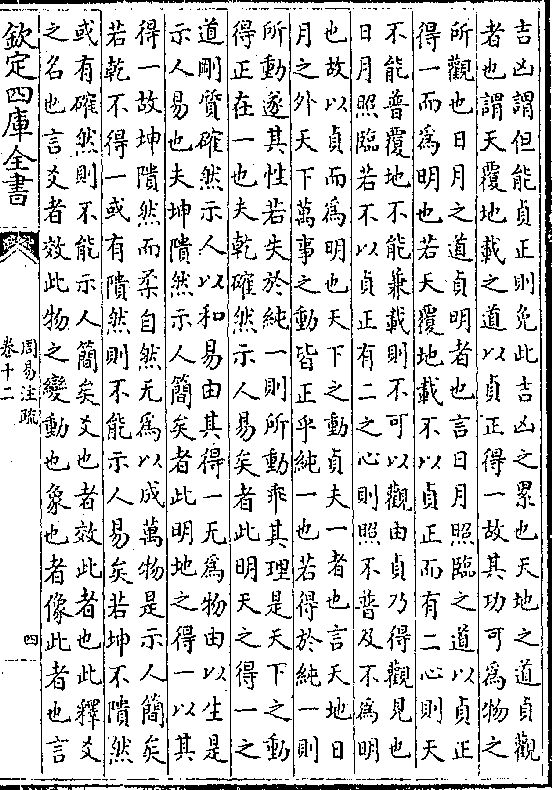 吉凶謂但能貞正則免此吉凶之累也天地之道貞觀
者也謂天覆地載之道以貞正得一故其功可爲物之
所觀也日月之道貞明者也言日月照臨之道以貞正
得一而爲明也若天覆地載不以貞正而有二心則天
不能普覆地不能兼載則不可以觀由貞乃得觀見也
日月照臨若不以貞正有二之心則照不普及不爲明
也故以貞而爲明也天下之動貞夫一者也言天地日
月之外天下萬事之動皆正乎純一也若得於純一則
所動遂其性若失於純一則所動乖其理是天下之動
得正在一也夫乾確然示人易矣者此明天之得一之
道剛質確然示人以和易由其得一无爲物由以生是
示人易也夫坤隤然示人簡矣者此明地之得一以其
得一故坤隤然而柔自然无爲以成萬物是示人簡矣
若乾不得一或有隤然則不能示人易矣若坤不隤然
或有確然則不能示人簡矣爻也者效此者也此釋爻
之名也言爻者效此物之變動也象也者像此者也言
欽定四庫全書
周易注疏
卷十二
四